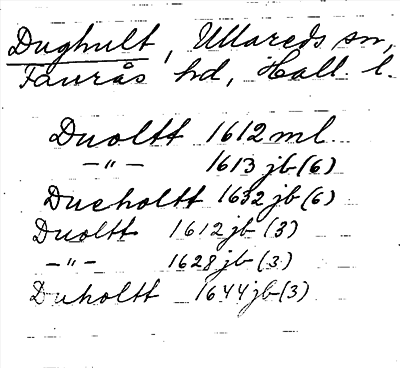 Dughult, Ullareds sn,
Faurås hd, Hall. l.
Duoltt 1612 ml
—"— 1613 jb (6)
Ducholtt 1632 jb (6)
Duoltt 1612 jb (3)
—"— 1628 jb (3)
Duholtt 1644 jb (3)